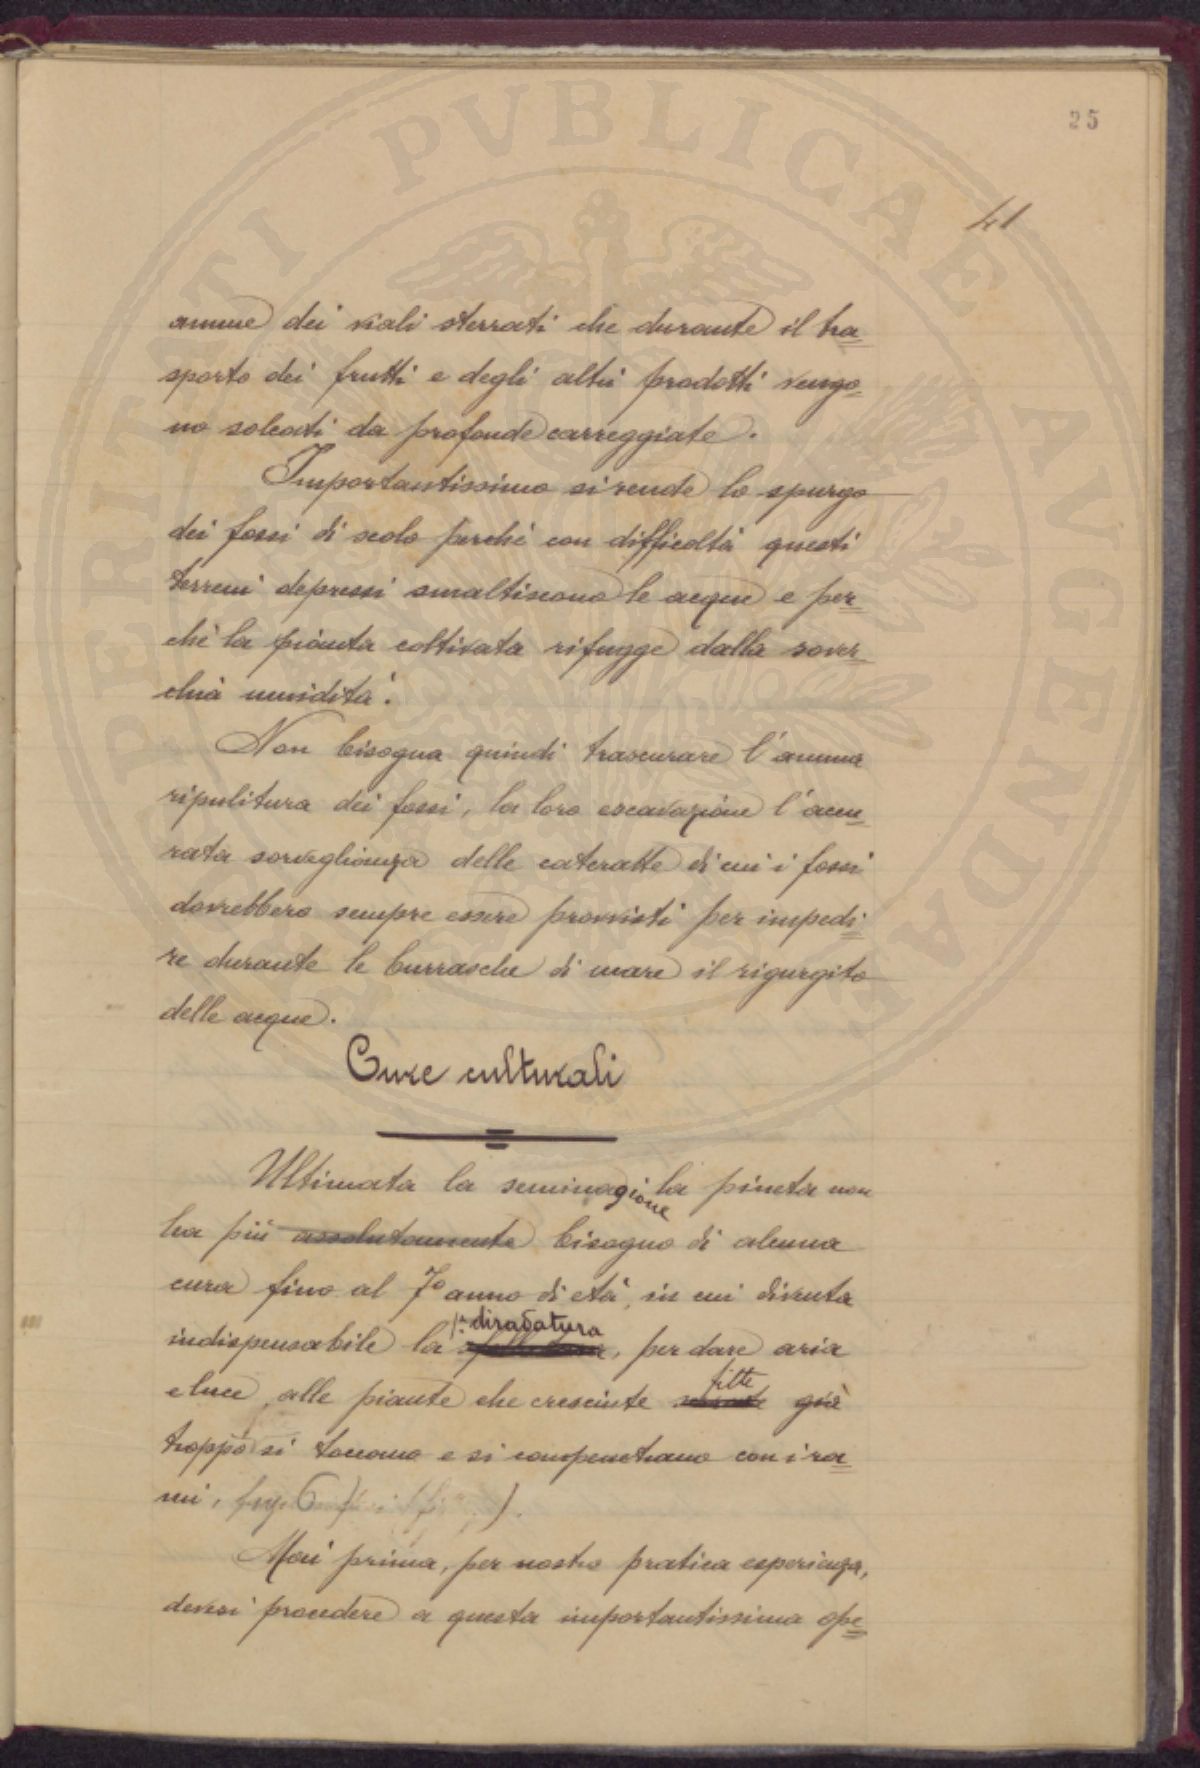 25
41
annue dei viali sterrati che durante il tra=
sporto dei frutti e degli altri prodotti vengo=
no solcati da profonde carreggiate.
Importantissimo si rende lo spurgo
dei fossi di scolo perchè con difficoltà questi
terreni depressi smaltiscono le acque e per=
chè la pianta coltivata rifugge dalla sover=
chia umidità.
Non bisogna quindi trascurare l'annua
ripulitura dei fossi, la loro escavazione l'accu=
rata sorveglianza delle cateratte di cui i fossi
dovrebbero sempre essere provvisti per impedi=
re durante le burrasche di mare il rigurgito
delle acque.
Cure culturali
Ultimata la seminagione la pineta non
ha più assolutamente bisogno di alcuna
cura fino al 7º anno di età, in cui diventa
indispensabile la 1ª diradatura, per dare aria
e luce, alle piante che cresciute fitte già
troppo si toccano e si compenetrano con i ra=
mi, fig. 6)
Mai prima, per nostra pratica esperienza,
devesi procedere a questa importantissima ope=
PERITATI PVBLICAE AVGENDAE